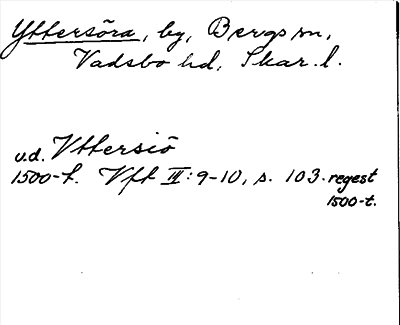 Yttersöra, by, Bergs sn,
Vadsbo hd, Skar. l.
u.d. Yttersiö
1500-t. Vft III: 9-10, s. 103. regest
1500-t.